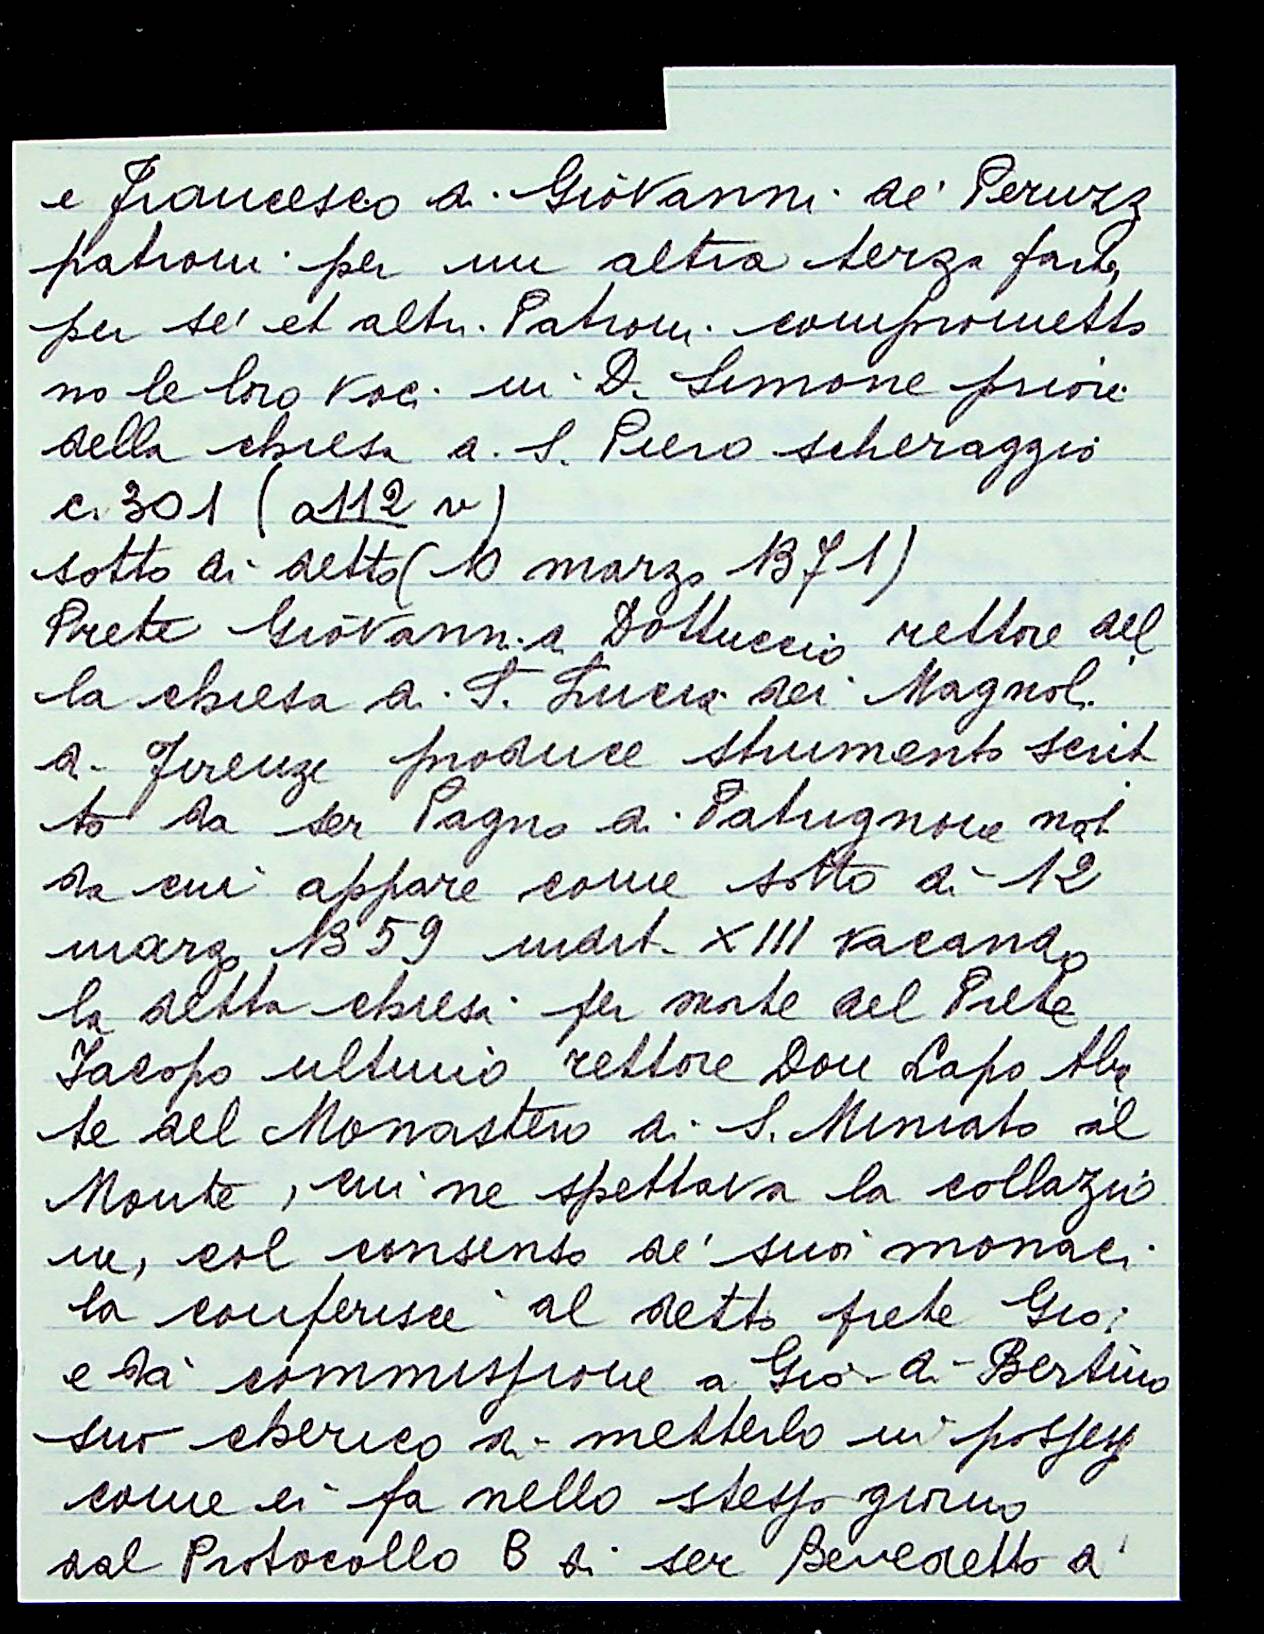 e Francesco di Giovanni de' Peruzz
patroni per un altra terza parte,
per se' et altri Patroni comprometto
no le loro voci in D. Simone priore
della chiesa di S. Piero scheraggio
c. 301 (a 112 v)
sotto di detto (10 marzo 1371)
Prete Giovanni di Dottuccio rettore del
la chiesa di S. Lucia dei Magnoli
di Firenze produce strumento scrit
to da ser Pagno di Patrignone not
da cui appare come sotto di 12
marzo 1359 indit. XIII vacando
la detta chiesa per morte del Prete
Iacopo ultimo rettore Don Lapo Aba
te del Monastero di S. Miniato al
Monte, cui ne spettava la collazio
ne, col consenso de' suoi monaci
la conferisce al detto prete Gio:
e dà commissione a Gio. di Bertino
suo cherico di metterlo in possess
come ei fa nello stesso giorno
dal Protocollo B di ser Benedetto d'